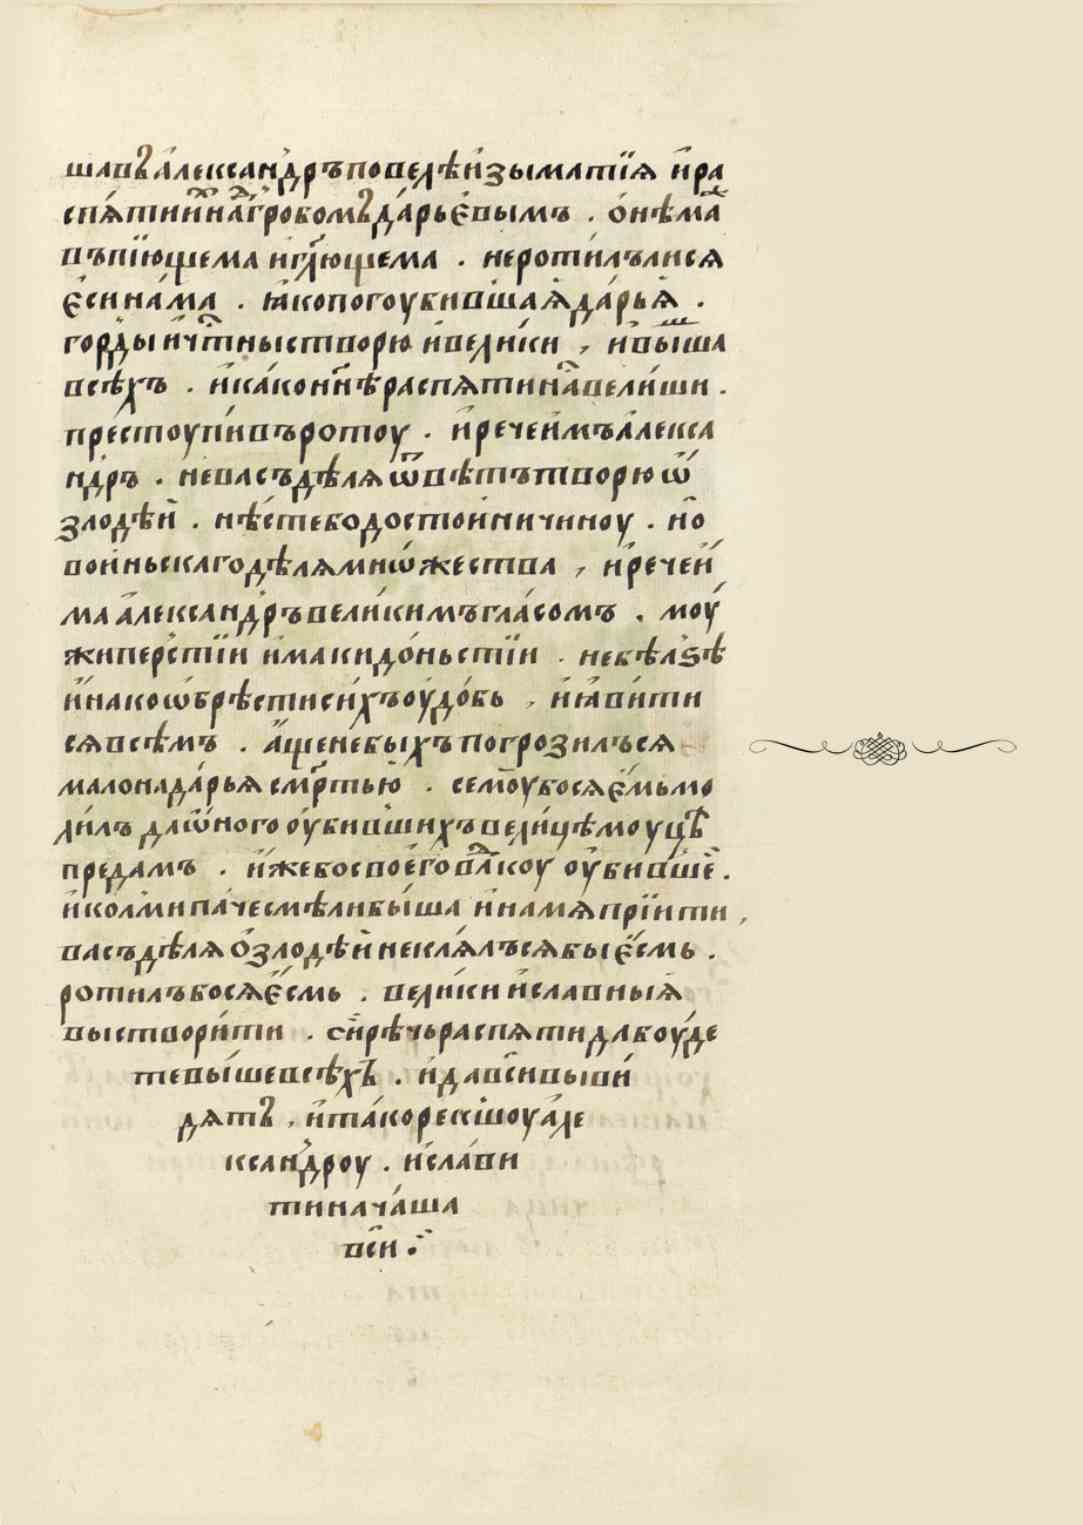 шавъ а҆леѯандръ повелѣ и҆зыматїѧ и҆ ра
спѧ́тии҆хъ надъ гробомъ да́рье҆вымъ . ѻ҆нѣма же
въпїющема и҆ гл҃ющема . не ротилълисѧ
є҆си на́ма . ꙗ҆ко погоубившаѧ҆ да́рьѧ .
горды и҆ чтⷭ҇ны створю и҆ вели́ки , и҆ вы́шша
всѣхъ . и҆ ка́ко нн҃ѣ распѧти на́съ вели́ши .
престоупи́въ ротоу . и҆ рече и҆мъ а҆лекса
ндръ . не васъ дѣлѧ ѿвѣтъ творю ѽ
злодѣи҆ . нѣсте бо досто́йни чиноу . но
воиньскаго дѣлѧ мнѡжества , и҆ рече и҆
ма а҆лександръ вели́кимъ гла́сомъ . моу́
жи перстїи и҆ македо́ньстїи . не бѣ лѕѣ
и҆нако ѡбрѣсти си́хъ оу҆до́бь , и҆ ꙗ҆ви́ти
сѧ всѣмъ . а҆ще не быхъ погрозилъсѧ
мало на да́рьѧ смр҃тью . семоу босѧ є҆мь мо
ли́лъ да ѡ҆ного оу҆бившихъ вели́цѣ моуцѣ
предамъ . и҆же бо своего влⷣкоу оу҆бивше .
и҆колми па́че смѣли бы́ша и҆ на мѧ прїи́ти ,
васъ дѣлѧ ѻ҆ злодѣи не клѧ́лъсѧ бы є҆смь .
ротилъбосѧ є҆смь . вели́ки и҆ славныѧ҆
вы створи́ти . си́рѣчь распѧти да боу́де
те вы́ше всѣхъ . и҆ да вси вы ви́
дѧтъ , и҆ та́ко рекшоу а҆ле
ксандроу . и҆ сла́ви
ти нача́ша
вси .